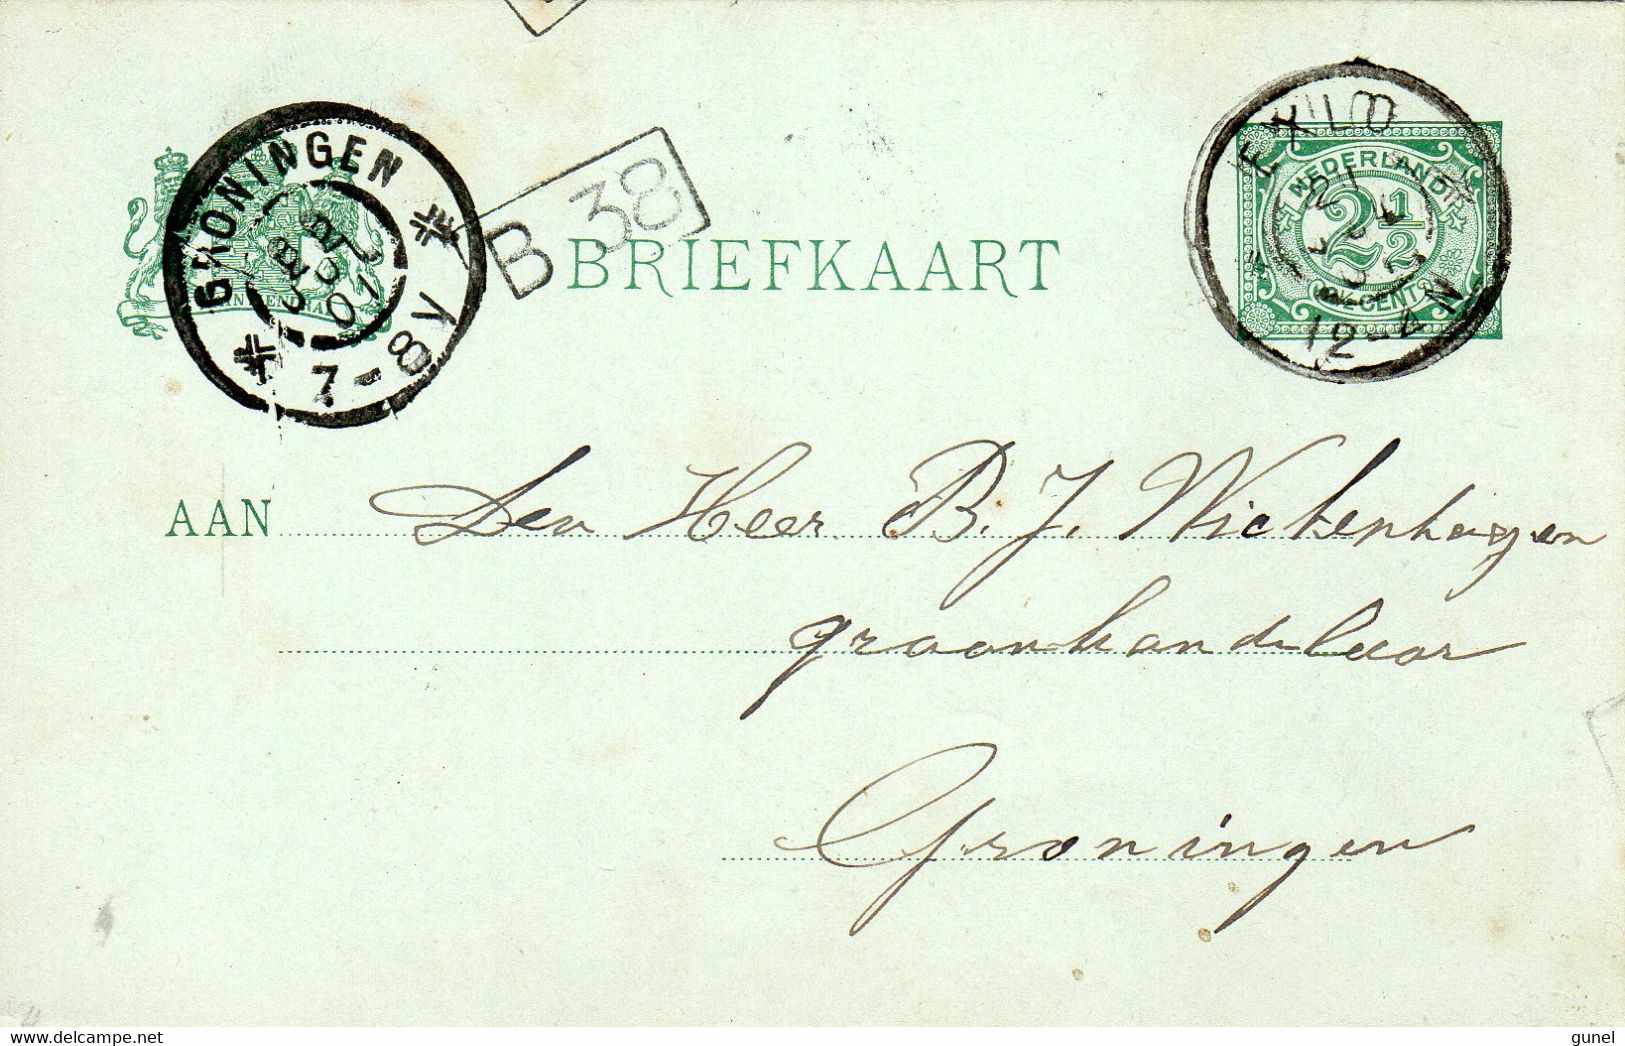 GRONINGEN
7-8 V
B 38
BRIEFKAART
EXLOO
12-4 N
NEDERLAND
2 1/2
CENT
AAN Den Heer B. J. Wichenhagen
graanhandelaar
Groningen
delcampe.net
gunel